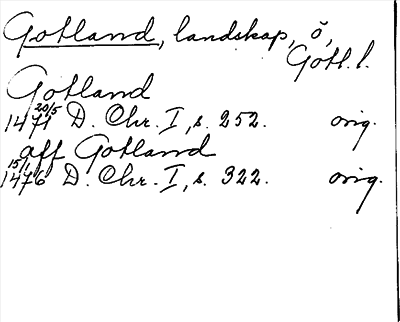 Gotland, landskap, ö,
Gotl. l.
Gotland
1471 20/5 D. Chr. I, s. 252. orig.
aff Gotland
1476 D. Chr. I, s. 322. orig.